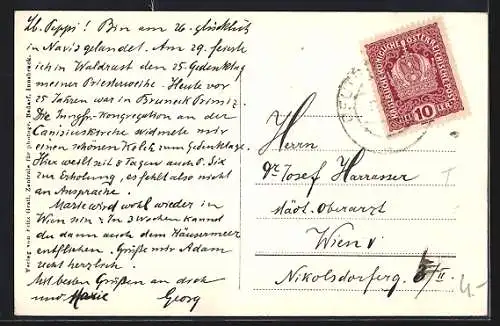 Lb. Peppi! Bin am 26. glücklich
in Navis gelandet. Am 29. feierte
ich in Waldrast den 25. Gedenktag
meiner Priesterweihe. Heute vor
25 Jahren war in Bruneck Primiz.
Die Jungfr.-Kongregation an der
Canisiuskirche widmete mir
einen schönen Kelch zum Gedenktage.
Hier weilt seit 8 Tagen auch P. Six
zur Erholung, es fehlt also nicht
an Ansprache.
Marie wird wohl wieder in
Wien sein & In 3 Wochen kannst
du dann auch dem Häusermeer
entfliehen. Grüße mir Adam
recht herzlich.
Mit besten Grüßen an dich
und Maxie Georg
Verlag von Fritz Gratl, Zentrale für photogr. Bedarf, Innsbruck.
KAISERLICHE KÖNIGLICHE ÖSTERREICHISCHE POST
10 HELLER
Herrn
Dr. Josef Harrasser
städt. Oberarzt
Wien V
Nikolsdorferg. /II
4.-